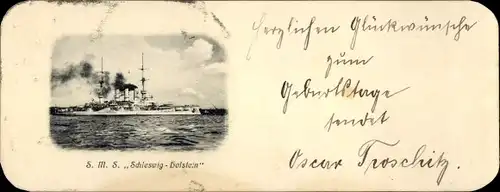 Herzlichen Glückwünsche
zum
Geburtstage
sendet
Oscar Troschitz.
S. M. S. „Schleswig-Holstein"